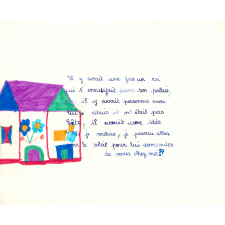 il y avait une fois un roi
qui s'ennuyait dans son palais,
il y avait personne avec
lui il n'était pas
bête, il avait une idée
je voulais, je pourrai aller
le soleil pour lui demander
de venir chez moi